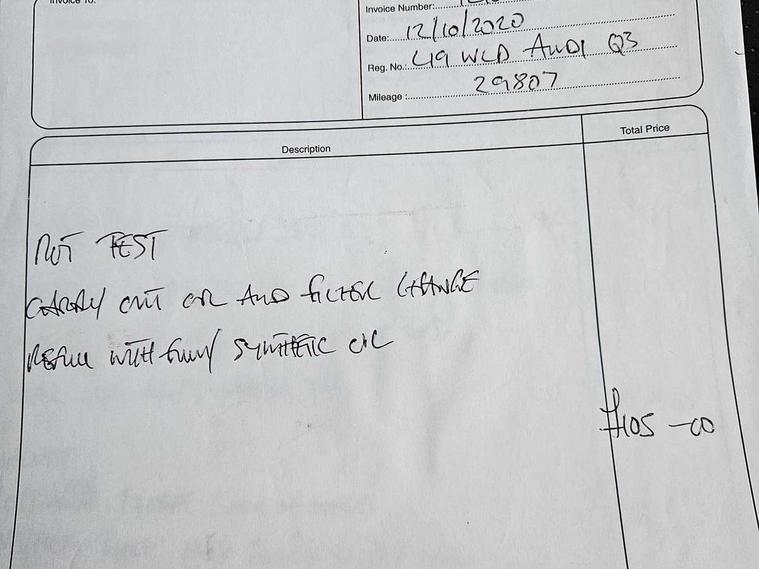 Invoice To:
Invoice Number:
Date: 12/10/2020
Reg. No.: WCD AUDI Q3
Mileage: 29807
Description
Total Price
MOT TEST
CARRY OUT OIL AND FILTER CHANGE
REFILL WITH FULLY SYNTHETIC OIL
£105-00